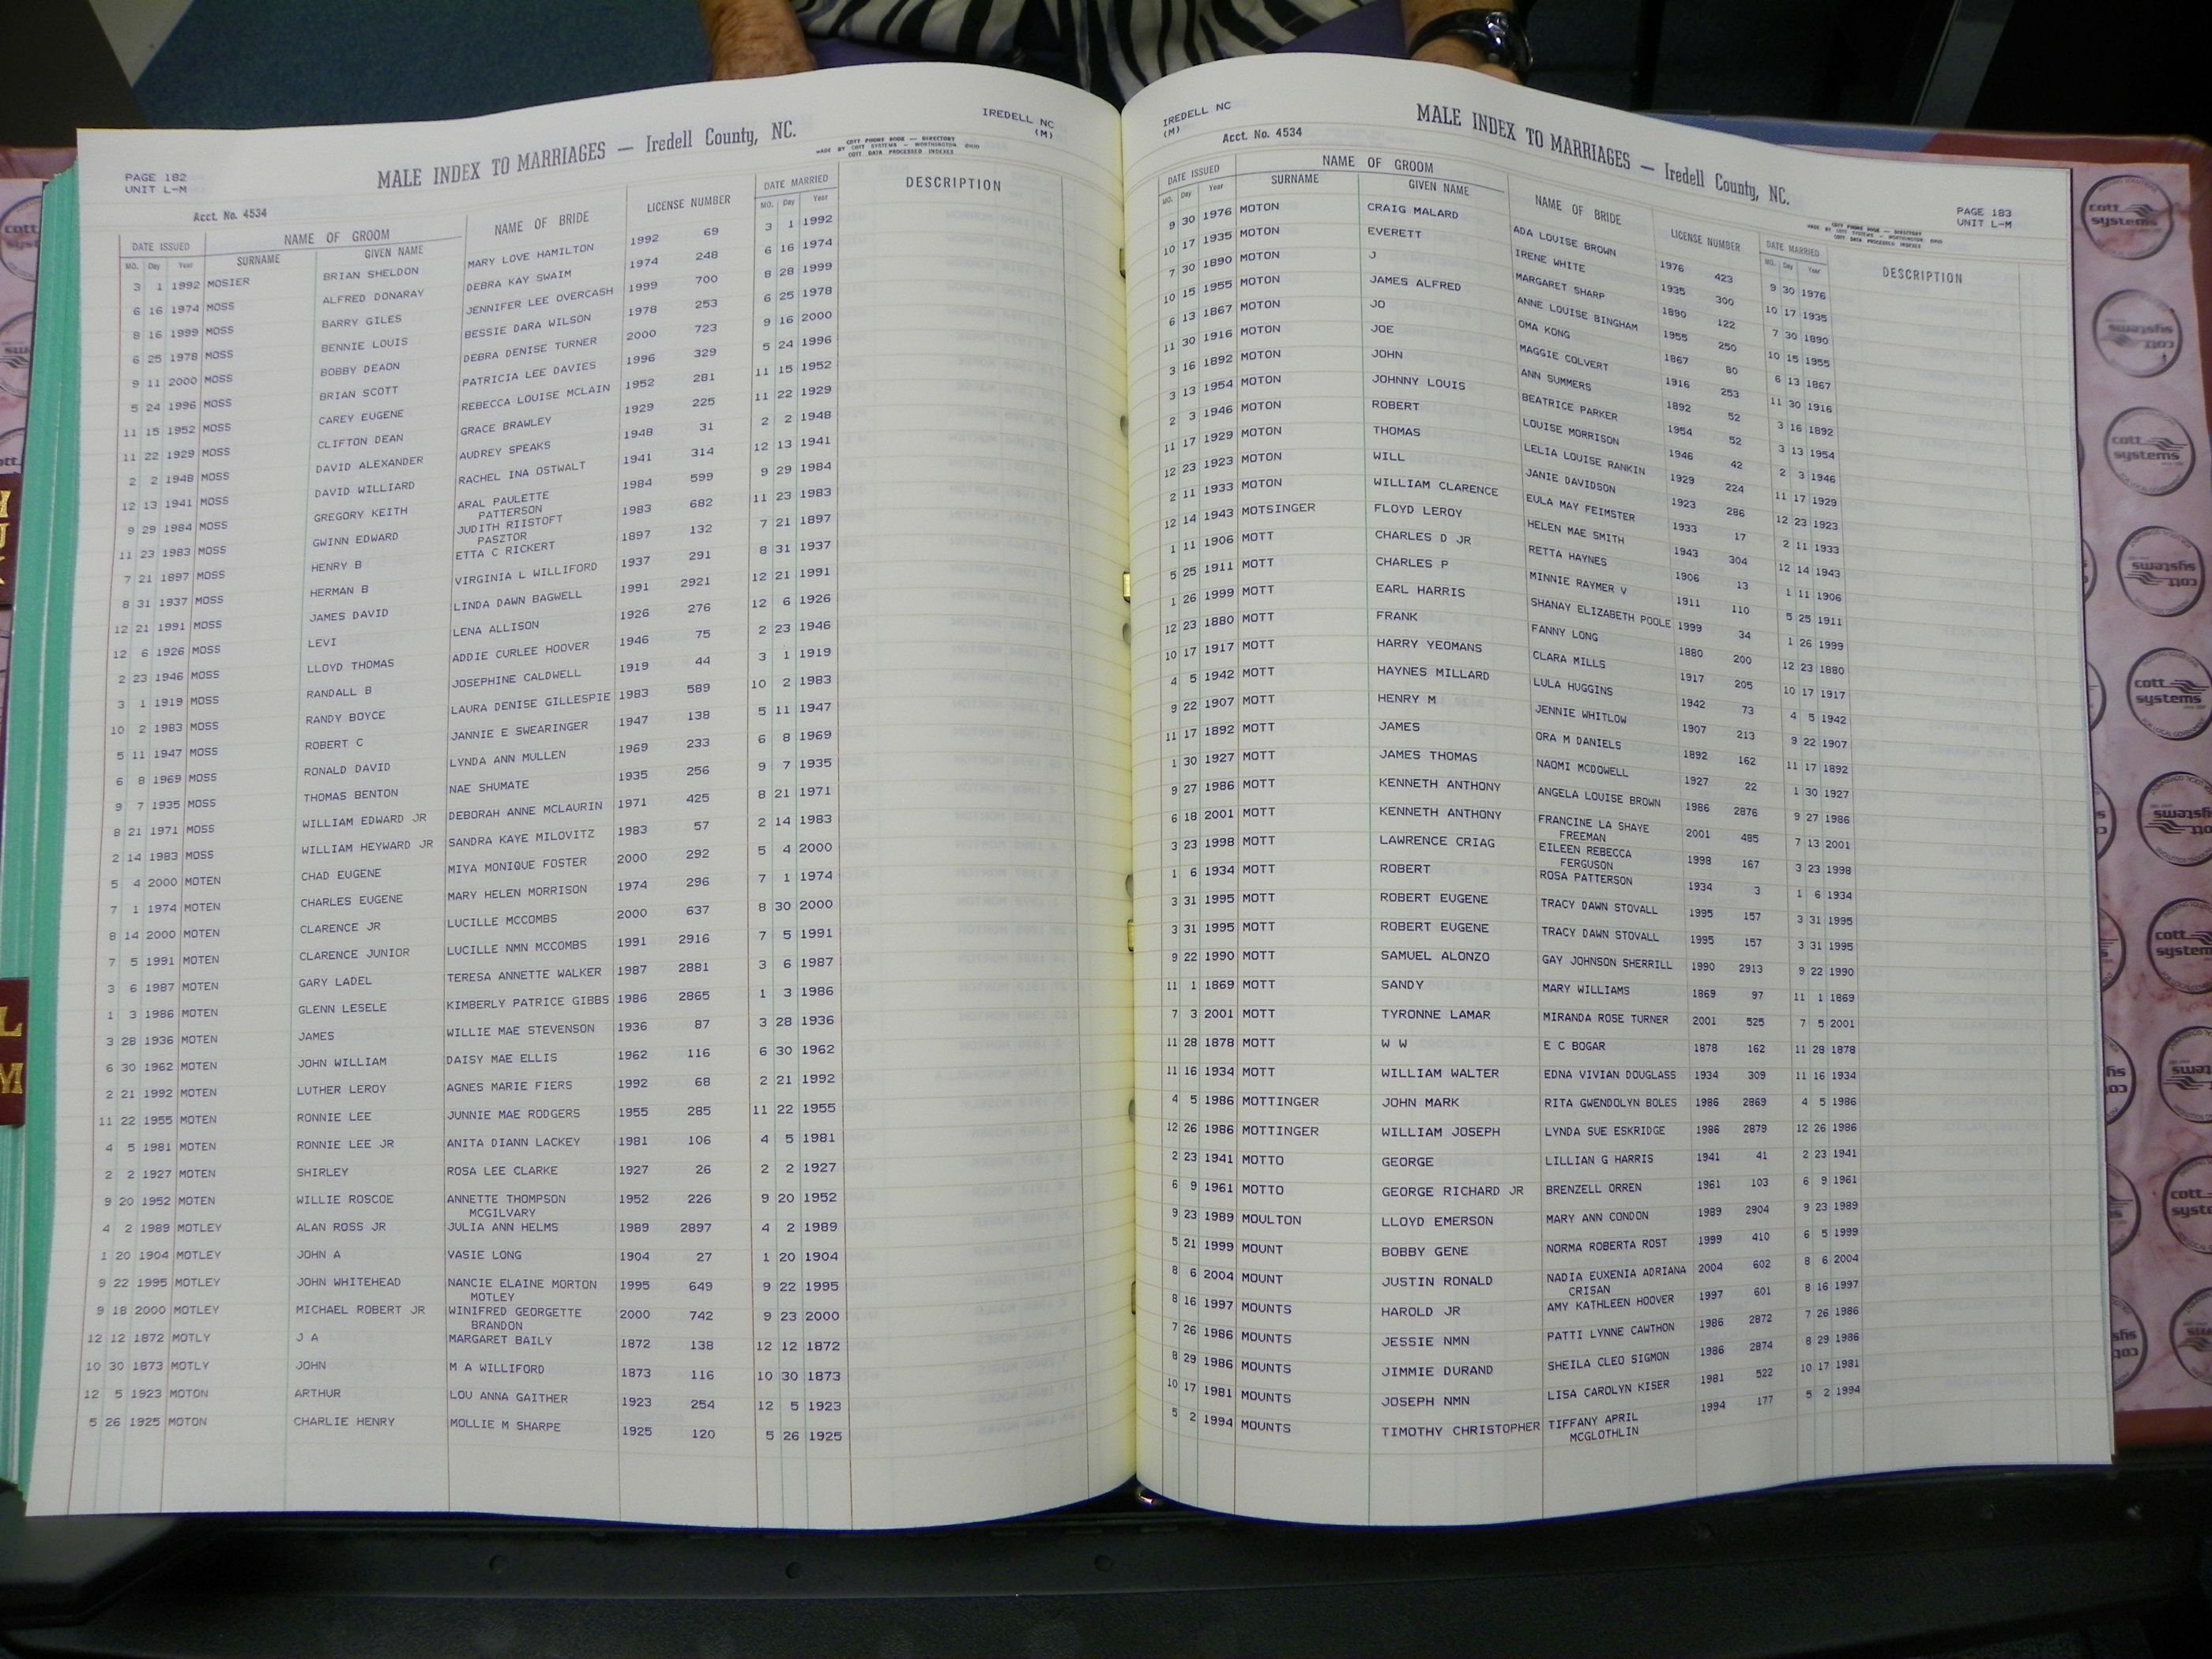 IREDELL NC
(M)
MALE INDEX TO MARRIAGES — Iredell County, NC.
COTT PHONE BOOK — DIRECTORY
MADE BY COTT SYSTEMS — WORTHINGTON OHIO
COTT DATA PROCESSED INDEXES
PAGE 182
UNIT L-M
Acct. No. 4534
DATE ISSUED NAME OF GROOM NAME OF BRIDE LICENSE NUMBER DATE MARRIED DESCRIPTION
MO. Day Year SURNAME GIVEN NAME MO. Day Year
3 1 1992 MOSIER BRIAN SHELDON MARY LOVE HAMILTON 1992 69 3 1 1992
6 16 1974 MOSS ALFRED DONARAY DEBRA KAY SWAIM 1974 248 6 16 1974
8 16 1999 MOSS BARRY GILES JENNIFER LEE OVERCASH 1999 700 8 28 1999
6 25 1978 MOSS BENNIE LOUIS BESSIE DARA WILSON 1978 253 6 25 1978
9 11 2000 MOSS BOBBY DEAON DEBRA DENISE TURNER 2000 723 9 16 2000
5 24 1996 MOSS BRIAN SCOTT PATRICIA LEE DAVIES 1996 329 5 24 1996
11 15 1952 MOSS CAREY EUGENE REBECCA LOUISE MCLAIN 1952 281 11 15 1952
11 22 1929 MOSS CLIFTON DEAN GRACE BRAWLEY 1929 225 11 22 1929
2 2 1948 MOSS DAVID ALEXANDER AUDREY SPEAKS 1948 31 2 2 1948
12 13 1941 MOSS DAVID WILLIARD RACHEL INA OSTWALT 1941 314 12 13 1941
9 29 1984 MOSS GREGORY KEITH ARAL PAULETTE 1984 599 9 29 1984
PATTERSON
11 23 1983 MOSS GWINN EDWARD JUDITH RIISTOFT 1983 682 11 23 1983
PASZTOR
7 21 1897 MOSS HENRY B ETTA C RICKERT 1897 132 7 21 1897
8 31 1937 MOSS HERMAN B VIRGINIA L WILLIFORD 1937 291 8 31 1937
12 21 1991 MOSS JAMES DAVID LINDA DAWN BAGWELL 1991 2921 12 21 1991
12 6 1926 MOSS LEVI LENA ALLISON 1926 276 12 6 1926
2 23 1946 MOSS LLOYD THOMAS ADDIE CURLEE HOOVER 1946 75 2 23 1946
3 1 1919 MOSS RANDALL B JOSEPHINE CALDWELL 1919 44 3 1 1919
10 2 1983 MOSS RANDY BOYCE LAURA DENISE GILLESPIE 1983 589 10 2 1983
5 11 1947 MOSS ROBERT C JANNIE E SWEARINGER 1947 138 5 11 1947
6 8 1969 MOSS RONALD DAVID LYNDA ANN MULLEN 1969 233 6 8 1969
9 7 1935 MOSS THOMAS BENTON NAE SHUMATE 1935 256 9 7 1935
8 21 1971 MOSS WILLIAM EDWARD JR DEBORAH ANNE MCLAURIN 1971 425 8 21 1971
2 14 1983 MOSS WILLIAM HEYWARD JR SANDRA KAYE MILOVITZ 1983 57 2 14 1983
5 4 2000 MOTEN CHAD EUGENE MIYA MONIQUE FOSTER 2000 292 5 4 2000
7 1 1974 MOTEN CHARLES EUGENE MARY HELEN MORRISON 1974 296 7 1 1974
8 14 2000 MOTEN CLARENCE JR LUCILLE MCCOMBS 2000 637 8 30 2000
7 5 1991 MOTEN CLARENCE JUNIOR LUCILLE NMN MCCOMBS 1991 2916 7 5 1991
3 6 1987 MOTEN GARY LADEL TERESA ANNETTE WALKER 1987 2881 3 6 1987
1 3 1986 MOTEN GLENN LESELE KIMBERLY PATRICE GIBBS 1986 2865 1 3 1986
3 28 1936 MOTEN JAMES WILLIE MAE STEVENSON 1936 87 3 28 1936
6 30 1962 MOTEN JOHN WILLIAM DAISY MAE ELLIS 1962 116 6 30 1962
2 21 1992 MOTEN LUTHER LEROY AGNES MARIE FIERS 1992 68 2 21 1992
11 22 1955 MOTEN RONNIE LEE JUNNIE MAE RODGERS 1955 285 11 22 1955
4 5 1981 MOTEN RONNIE LEE JR ANITA DIANN LACKEY 1981 106 4 5 1981
2 2 1927 MOTEN SHIRLEY ROSA LEE CLARKE 1927 26 2 2 1927
9 20 1952 MOTEN WILLIE ROSCOE ANNETTE THOMPSON 1952 226 9 20 1952
MCGILVARY
4 2 1989 MOTLEY ALAN ROSS JR JULIA ANN HELMS 1989 2897 4 2 1989
1 20 1904 MOTLEY JOHN A VASIE LONG 1904 27 1 20 1904
9 22 1995 MOTLEY JOHN WHITEHEAD NANCIE ELAINE MORTON 1995 649 9 22 1995
MOTLEY
9 18 2000 MOTLEY MICHAEL ROBERT JR WINIFRED GEORGETTE 2000 742 9 23 2000
BRANDON
12 12 1872 MOTLY J A MARGARET BAILY 1872 138 12 12 1872
10 30 1873 MOTLY JOHN M A WILLIFORD 1873 116 10 30 1873
12 5 1923 MOTON ARTHUR LOU ANNA GAITHER 1923 254 12 5 1923
5 26 1925 MOTON CHARLIE HENRY MOLLIE M SHARPE 1925 120 5 26 1925
IREDELL NC
(M)
Acct. No. 4534
MALE INDEX TO MARRIAGES — Iredell County, NC.
PAGE 183
UNIT L-M
DATE ISSUED NAME OF GROOM NAME OF BRIDE LICENSE NUMBER DATE MARRIED DESCRIPTION
MO. Day Year SURNAME GIVEN NAME MO. Day Year
9 30 1976 MOTON CRAIG MALARD ADA LOUISE BROWN 1976 423 9 30 1976
10 17 1935 MOTON EVERETT IRENE WHITE 1935 300 10 17 1935
7 30 1890 MOTON J MARGARET SHARP 1890 122 7 30 1890
10 15 1955 MOTON JAMES ALFRED ANNE LOUISE BINGHAM 1955 250 10 15 1955
6 13 1867 MOTON JO OMA KONG 1867 80 6 13 1867
11 30 1916 MOTON JOE MAGGIE COLVERT 1916 253 11 30 1916
3 16 1892 MOTON JOHN ANN SUMMERS 1892 52 3 16 1892
3 13 1954 MOTON JOHNNY LOUIS BEATRICE PARKER 1954 52 3 13 1954
2 3 1946 MOTON ROBERT LOUISE MORRISON 1946 42 2 3 1946
11 17 1929 MOTON THOMAS LELIA LOUISE RANKIN 1929 224 11 17 1929
12 23 1923 MOTON WILL JANIE DAVIDSON 1923 286 12 23 1923
2 11 1933 MOTON WILLIAM CLARENCE EULA MAY FEIMSTER 1933 17 2 11 1933
12 14 1943 MOTSINGER FLOYD LEROY HELEN MAE SMITH 1943 304 12 14 1943
1 11 1906 MOTT CHARLES D JR RETTA HAYNES 1906 13 1 11 1906
5 25 1911 MOTT CHARLES P MINNIE RAYMER V 1911 110 5 25 1911
1 26 1999 MOTT EARL HARRIS SHANAY ELIZABETH POOLE 1999 34 1 26 1999
12 23 1880 MOTT FRANK FANNY LONG 1880 200 12 23 1880
10 17 1917 MOTT HARRY YEOMANS CLARA MILLS 1917 205 10 17 1917
4 5 1942 MOTT HAYNES MILLARD LULA HUGGINS 1942 73 4 5 1942
9 22 1907 MOTT HENRY M JENNIE WHITLOW 1907 213 9 22 1907
11 17 1892 MOTT JAMES ORA M DANIELS 1892 162 11 17 1892
1 30 1927 MOTT JAMES THOMAS NAOMI MCDOWELL 1927 22 1 30 1927
9 27 1986 MOTT KENNETH ANTHONY ANGELA LOUISE BROWN 1986 2876 9 27 1986
6 18 2001 MOTT KENNETH ANTHONY FRANCINE LA SHAYE 2001 485 7 13 2001
FREEMAN
3 23 1998 MOTT LAWRENCE CRIAG EILEEN REBECCA 1998 167 3 23 1998
FERGUSON
1 6 1934 MOTT ROBERT ROSA PATTERSON 1934 3 1 6 1934
3 31 1995 MOTT ROBERT EUGENE TRACY DAWN STOVALL 1995 157 3 31 1995
3 31 1995 MOTT ROBERT EUGENE TRACY DAWN STOVALL 1995 157 3 31 1995
9 22 1990 MOTT SAMUEL ALONZO GAY JOHNSON SHERRILL 1990 2913 9 22 1990
11 1 1869 MOTT SANDY MARY WILLIAMS 1869 97 11 1 1869
7 3 2001 MOTT TYRONNE LAMAR MIRANDA ROSE TURNER 2001 525 7 5 2001
11 28 1878 MOTT W W E C BOGAR 1878 162 11 28 1878
11 16 1934 MOTT WILLIAM WALTER EDNA VIVIAN DOUGLASS 1934 309 11 16 1934
4 5 1986 MOTTINGER JOHN MARK RITA GWENDOLYN BOLES 1986 2869 4 5 1986
12 26 1986 MOTTINGER WILLIAM JOSEPH LYNDA SUE ESKRIDGE 1986 2879 12 26 1986
2 23 1941 MOTTO GEORGE LILLIAN G HARRIS 1941 41 2 23 1941
6 9 1961 MOTTO GEORGE RICHARD JR BRENZELL ORREN 1961 103 6 9 1961
9 23 1989 MOULTON LLOYD EMERSON MARY ANN CONDON 1989 2904 9 23 1989
5 21 1999 MOUNT BOBBY GENE NORMA ROBERTA ROST 1999 410 6 5 1999
8 6 2004 MOUNT JUSTIN RONALD NADIA EUXENIA ADRIANA 2004 602 8 6 2004
CRISAN
8 16 1997 MOUNTS HAROLD JR AMY KATHLEEN HOOVER 1997 601 8 16 1997
7 26 1986 MOUNTS JESSIE NMN PATTI LYNNE CAWTHON 1986 2872 7 26 1986
8 29 1986 MOUNTS JIMMIE DURAND SHEILA CLEO SIGMON 1986 2874 8 29 1986
10 17 1981 MOUNTS JOSEPH NMN LISA CAROLYN KISER 1981 522 10 17 1981
5 2 1994 MOUNTS TIMOTHY CHRISTOPHER TIFFANY APRIL 1994 177 5 2 1994
MCGLOTHLIN
cott systems
cott systems
cott systems